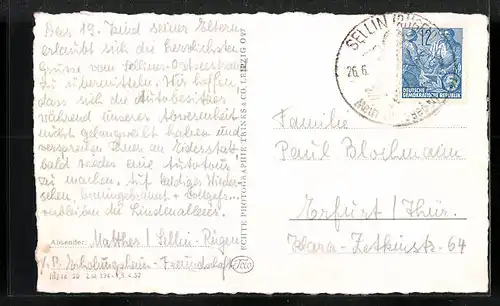 Das 19. Kind seiner Eltern
erlaubt sich die herzlichsten
Grüsse vom Selliner Ostseestrand
zu übermitteln. Wir hoffen,
dass sich die Autobesitzer
während unserer Abwesenheit
nicht gelangweilt haben und
versprechen Ihnen an Eidesstatt
bald wieder eine Autotour
zu machen. Auf baldiges Wieder-
sehen,
verbleiben die Lindenallee
Absender: Matthes / Sellin-Rügen
Erholungsheim-Freundschaft
ECHTE PHOTOGRAPHIE TRINKS & CO. LEIPZIG O 97
SELLIN (RÜGEN)
26.6.
12
DEUTSCHE
DEMOKRATISCHE REPUBLIK
Familie
Paul Blochmann
Erfurt / Thür.
Klara-Zetkinstr. 64
Trico